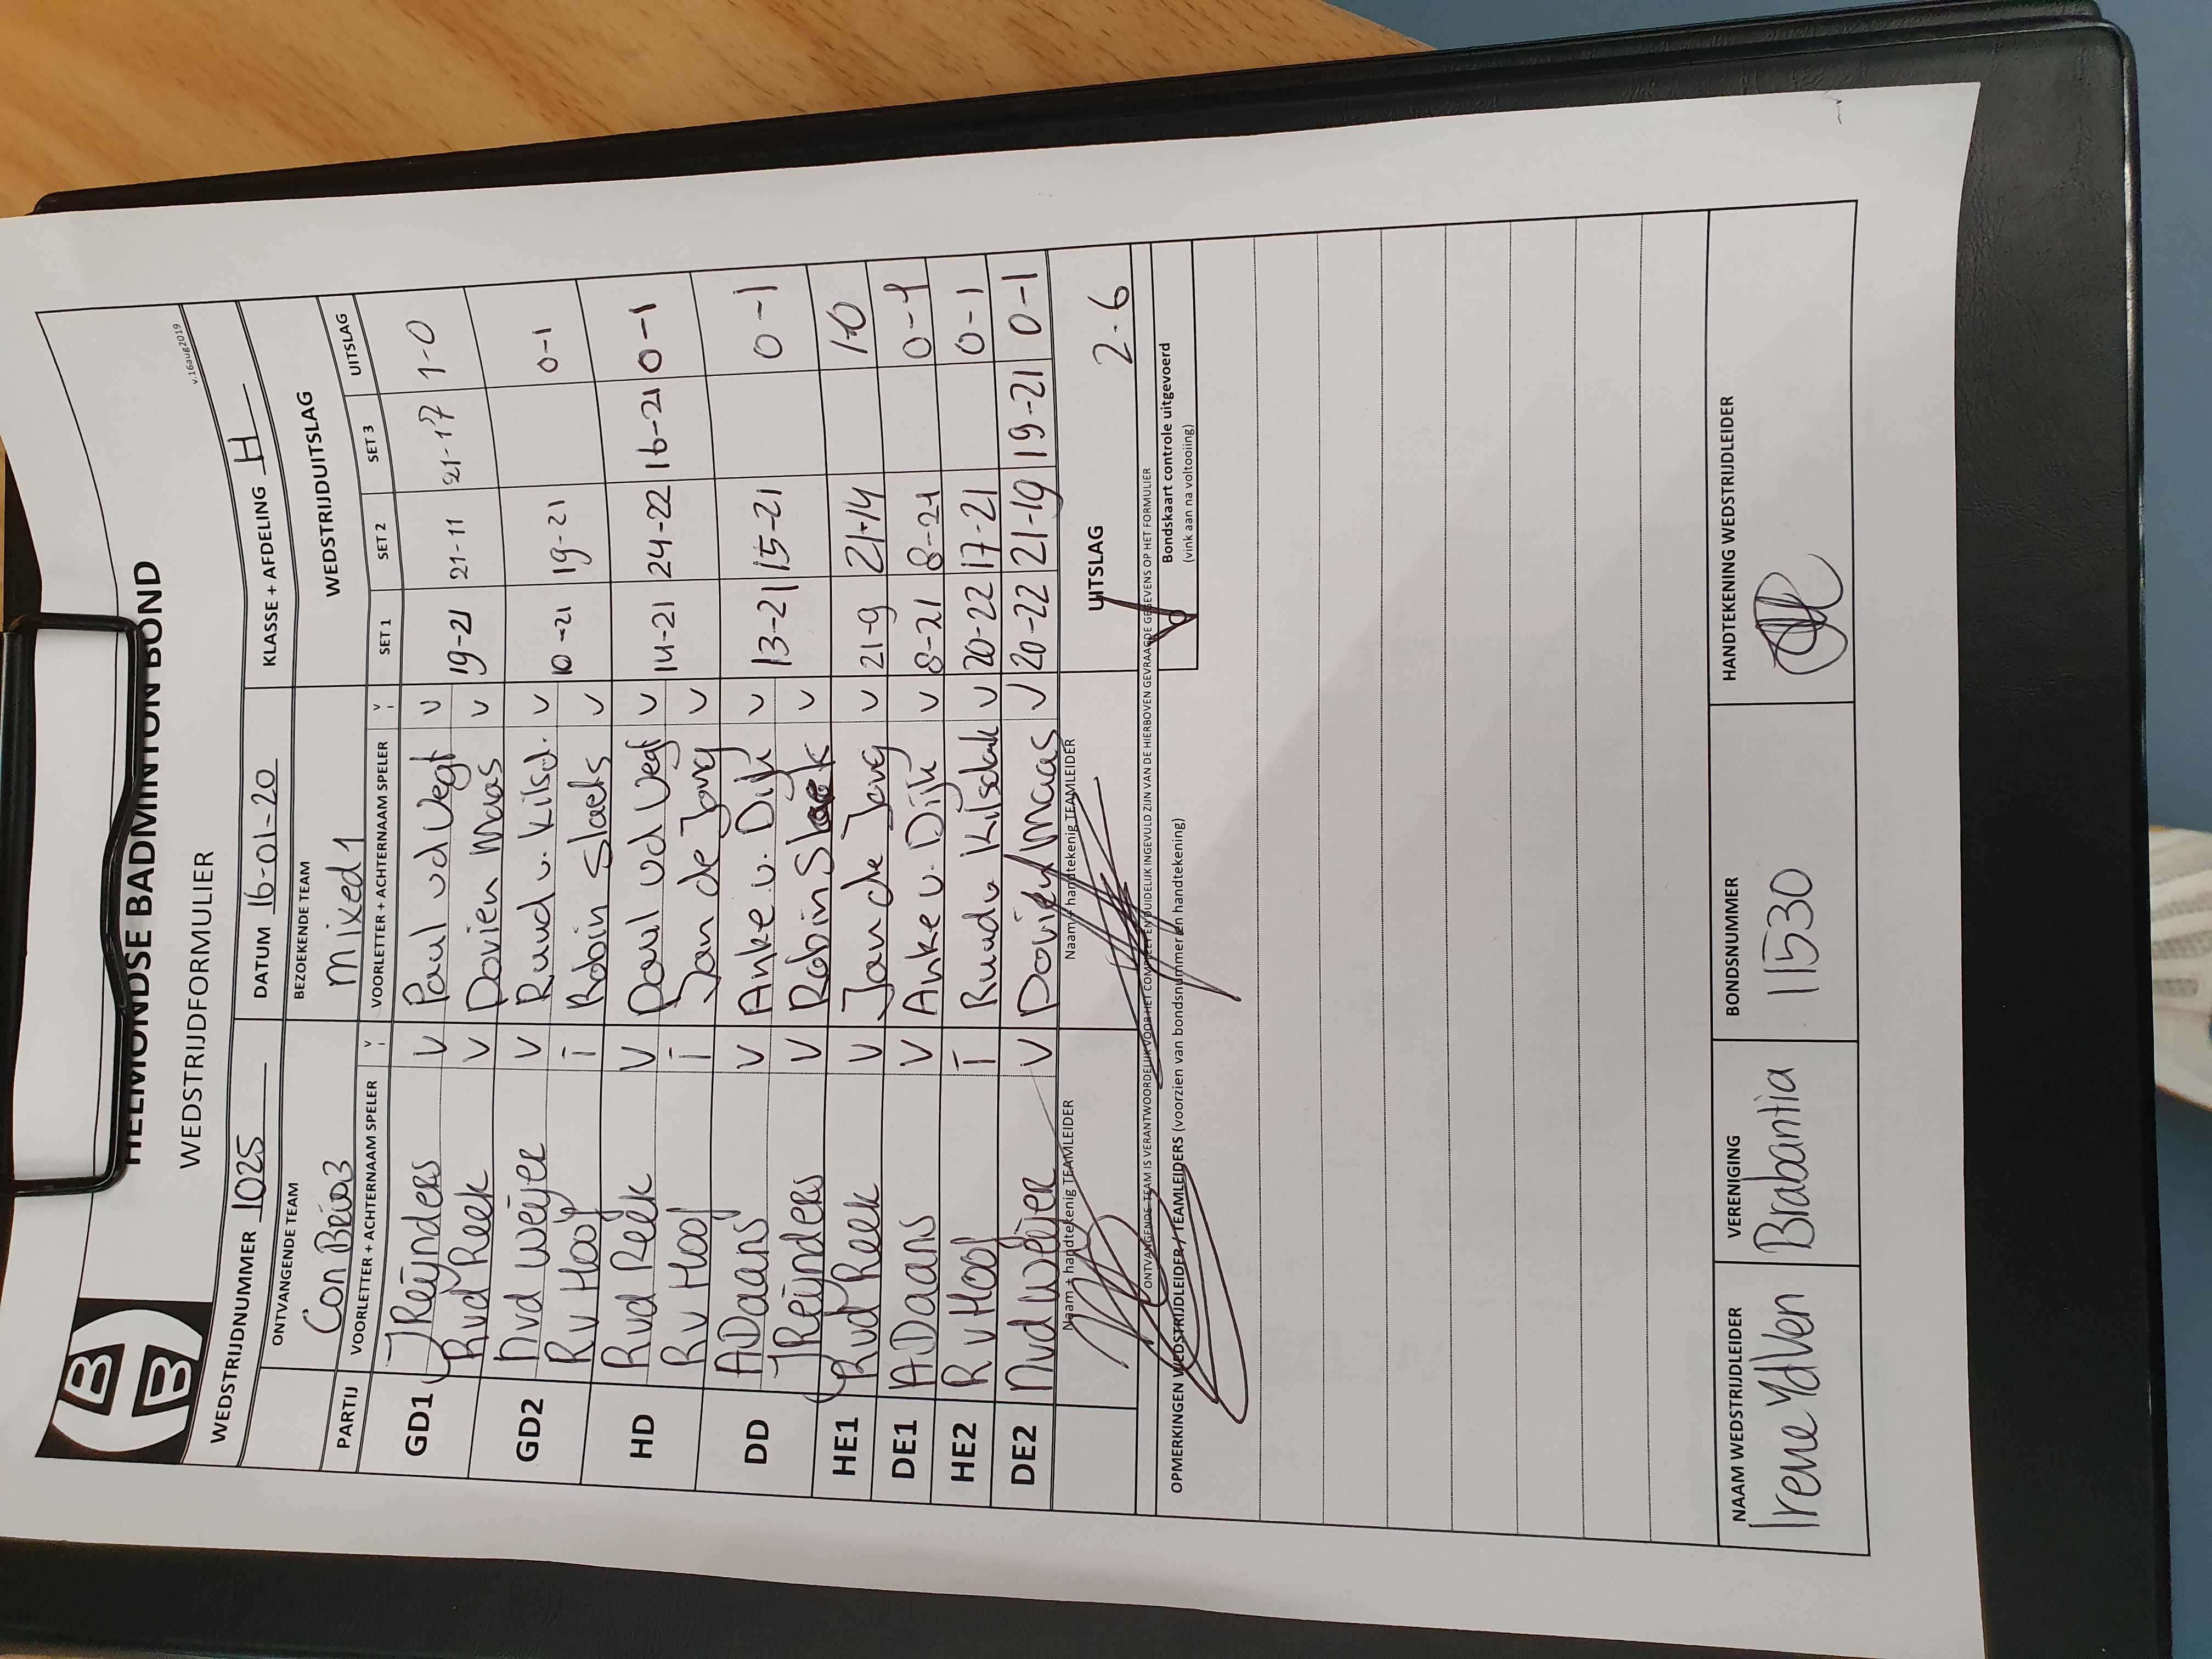 HELMONDSE BADMINTON BOND
WEDSTRIJDFORMULIER
v.16aug2019
WEDSTRIJDNUMMER 1025 DATUM 16-01-20 KLASSE + AFDELING H
ONTVANGENDE TEAM BEZOEKENDE TEAM WEDSTRIJDUITSLAG
Con Brio3 Mixed 1
PARTIJ VOORLETTER + ACHTERNAAM SPELER V I VOORLETTER + ACHTERNAAM SPELER V I SET 1 SET 2 SET 3 UITSLAG
GD1 J Reijnders V Paul vd Vegt V 19-21 21-11 21-17 1-0
R vd Reek V Dorien Maas V
GD2 N vd Weijer V Ruud v. Kilsd. V 10-21 19-21 0-1
R v Hoof I Robin Slaets V
HD R vd Reek V Paul vd Vegt V 14-21 24-22 16-21 0-1
R v Hoof I Jan de Jong V
DD A Daans V Anke v. Dijk V 13-21 15-21 0-1
J Reijnders V Robin V
HE1 R vd Reek V Jan de Jong V 21-9 21-14 1-0
DE1 A Daans V Anke v. Dijk V 8-21 8-21 0-1
HE2 R v Hoof I Ruud v Kilsdonk V 20-22 17-21 0-1
DE2 N vd Weijer V Dorien Maas V 20-22 21-19 19-21 0-1
Naam + handtekenig TEAMLEIDER Naam + handtekenig TEAMLEIDER UITSLAG 2-6
ONTVANGENDE TEAM IS VERANTWOORDELIJK VOOR HET COMPLEET EN DUIDELIJK INGEVULD ZIJN VAN DE HIERBOVEN GEVRAAGDE GEGEVENS OP HET FORMULIER
OPMERKINGEN WEDSTRIJDLEIDER / TEAMLEIDERS (voorzien van bondsnummer en handtekening)
Bondskaart controle uitgevoerd
(vink aan na voltooiing)
NAAM WEDSTRIJDLEIDER VERENIGING BONDSNUMMER HANDTEKENING WEDSTRIJDLEIDER
Irene vd Ven Brabantia 11530